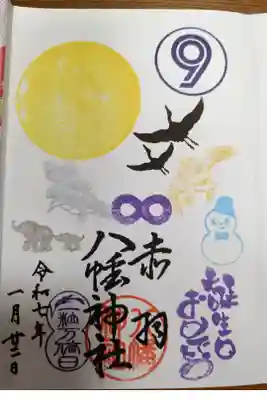 9
赤羽
八幡神社
令和七年
一月廿二日
お誕生日
おめでとう